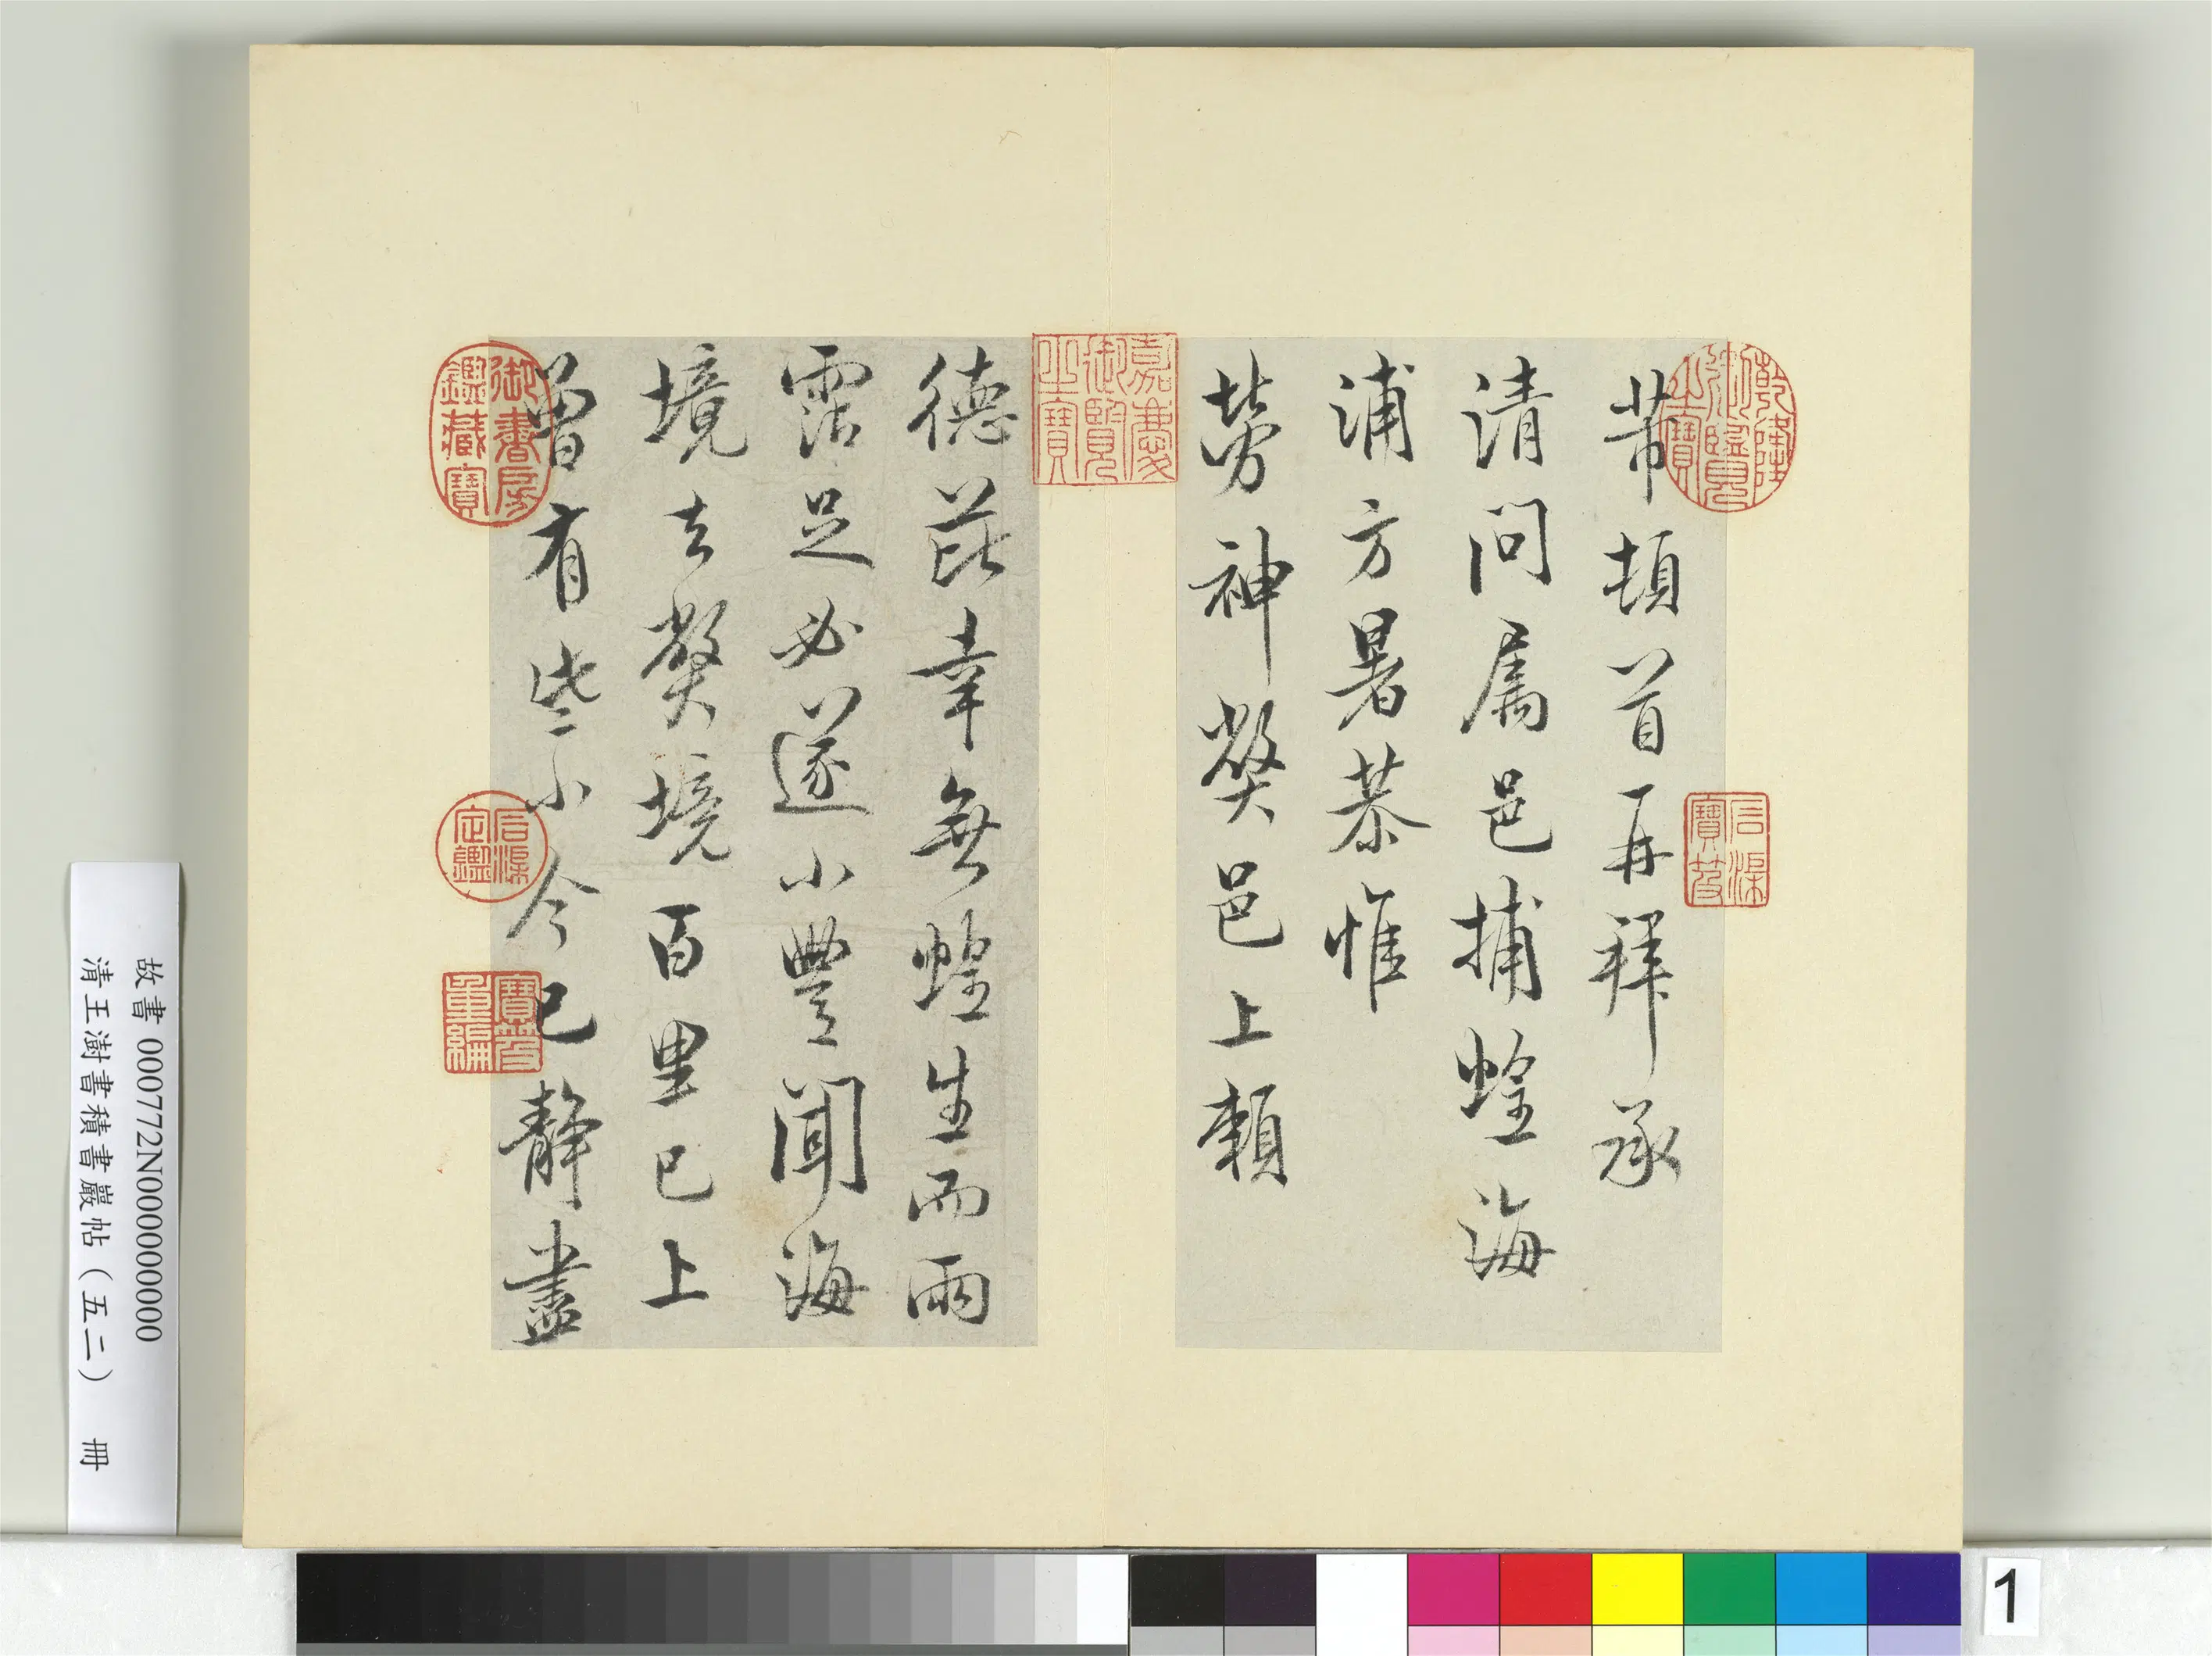 芾頓首再拜承
清問屬邑捕蝗海
浦方暑恭惟
勞神弊邑上賴
德芘幸無蝗生而雨
霑足必遂小豐聞海
境去弊境百里已上
曾有些小今已靜盡
乾隆御覽之寶
石渠寶笈
嘉慶御覽之寶
御書房鑑藏寶
石渠定鑑
寶笈重編
故書 000772N000000000
清王澍書積書巖帖(五二) 冊
1